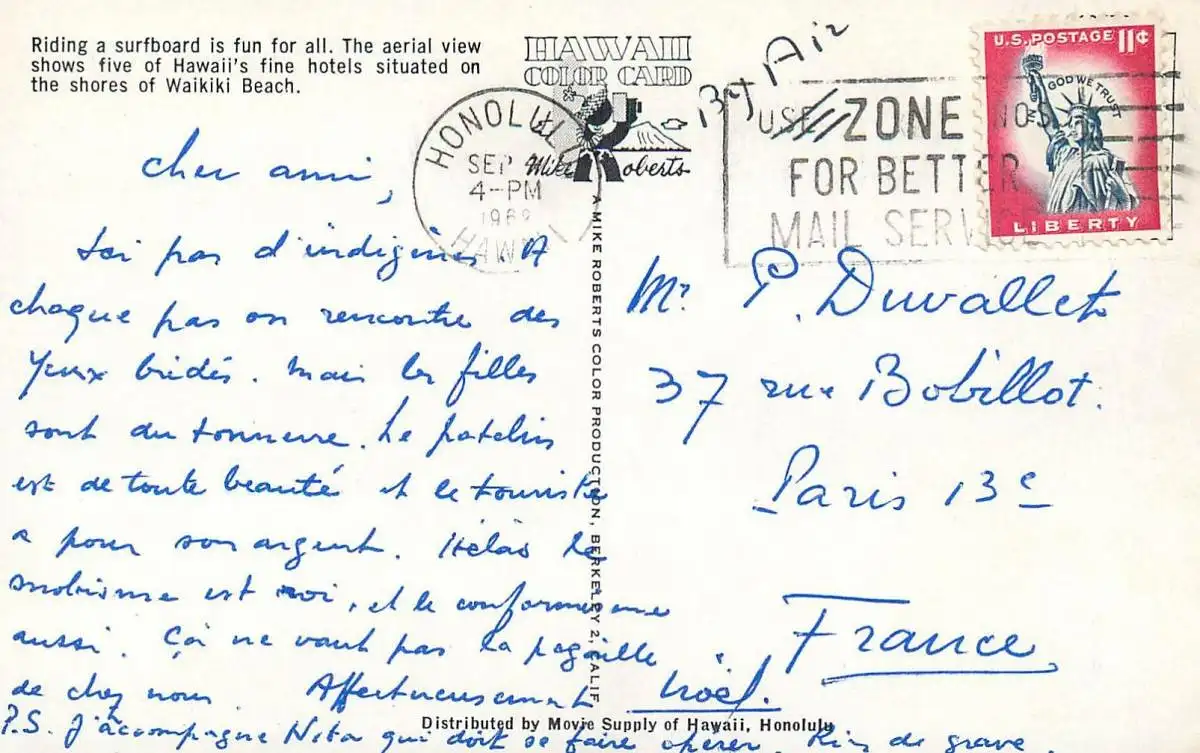 Riding a surfboard is fun for all. The aerial view
shows five of Hawaii's fine hotels situated on
the shores of Waikiki Beach.
HAWAII
COLOR CARD
Mike Roberts
A MIKE ROBERTS COLOR PRODUCTION, BERKELEY 2, CALIF
HONOLULU
SEP
4-PM
HAWAII
By Air
USE ZONE NOS
FOR BETTER
MAIL SERVICE
U.S. POSTAGE 11¢
IN GOD WE TRUST
LIBERTY
Cher ami,
Ici pas d'indigènes. A
chaque pas on rencontre des
Yeux bridés. Mais les filles
sont du tonnerre. Le patelin
est de toute beauté et le touriste
a pour son argent. Hélas le
snobisme est roi, et le conformisme
aussi. Ça ne vaut pas la pagaille
de chez nous. Affectueusement Noël.
P.S. J'accompagne Nita qui doit se faire opérer. Rien de grave
Mr P. Duvallet
37 rue Bobillot.
Paris 13e
France
Distributed by Movie Supply of Hawaii, Honolulu